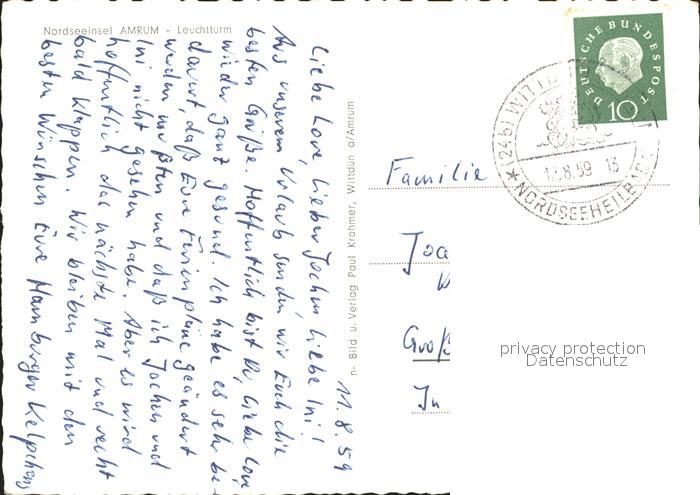 Nordseeinsel AMRUM - Leuchtturm
11. 8. 59
Liebe Lore, lieber Jochen, liebe Ini!
Aus unserem Urlaub senden wir Euch die
besten Grüße. Hoffentlich bist Du, liebe Lore,
wieder ganz gesund. Ich habe es sehr be-
dauert, daß Eure Ferienpläne geändert
werden mußten und daß ich Jochen und
Ini nicht gesehen habe. Aber es wird
hoffentlich das nächste Mal und recht
bald klappen. Wir bleiben mit den
besten Wünschen Eure Hamburger
n- Bild u. Verlag Paul Krahmer, Wittdün a/Amrum
DEUTSCHE BUNDESPOST
10
(24b) WITTD
12.8.59 13
NORDSEEHEILB
Familie
Joa
Groß
In
privacy protection
Datenschutz